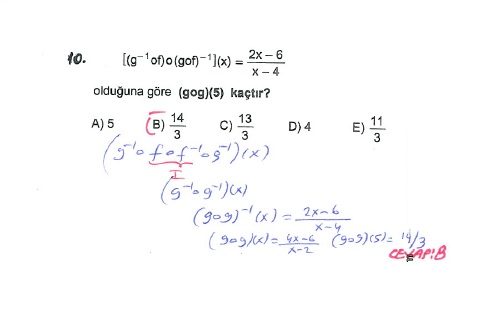 10. [(g⁻¹of)o(gof)⁻¹](x) = (2x – 6)/(x – 4)
olduğuna göre (gog)(5) kaçtır?
A) 5 B) 14/3 C) 13/3 D) 4 E) 11/3
(g⁻¹∘f∘f⁻¹∘g⁻¹)(x)
I
(g⁻¹∘g⁻¹)(x)
(gog)⁻¹(x) = (2x–6)/(x–4)
(gog)(x) = (4x–6)/(x–2) (gog)(5) = 14/3
CEVAP:B